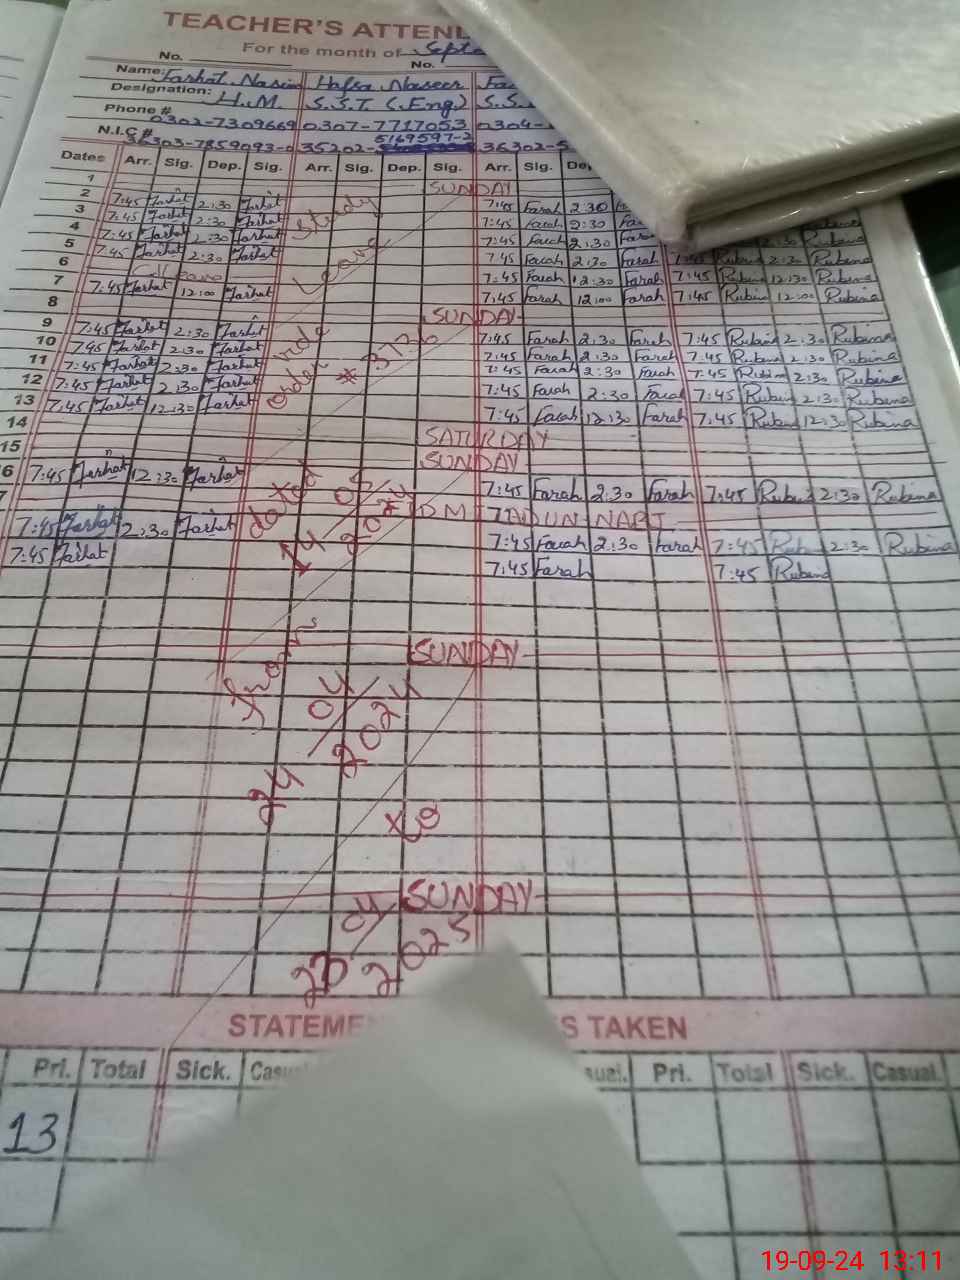 TEACHER'S ATTEN
For the month of Septe
No. No.
Name: Farhat Nasim Hafsa Naseer Fa
Designation: H.M. S.S.T (Eng) S.S.
Phone # 0302-7309669 0307-7717053 0304-
N.I.C # 36303-7859093-0 35202- 5169597-2 36302-5
Dates Arr. Sig. Dep. Sig. Arr. Sig. Dep. Sig. Arr. Sig. De
1 SUNDAY
2 7:45 Farhat 2:30 Farhat 7:45 Farah 2:30
3 7:45 Farhat 2:30 Farhat 7:45 Farah 2:30 Fa
4 7:45 Farhat 2:30 Farhat 7:45 Farah 2:30 Fara 2:30 Rubina
5 7:45 Farhat 2:30 Farhat 7:45 Farah 2:30 Farah 7:45 Rubina 2:30 Rubina
6 leave 7:45 Farah 12:30 Farah 7:45 Rubina 12:30 Rubina
7 7:45 Farhat 12:00 Farhat 7:45 Farah 12:00 Farah 7:45 Rubina 12:00 Rubina
8 SUNDAY
9 7:45 Farhat 2:30 Farhat 7:45 Farah 2:30 Farah 7:45 Rubina 2:30 Rubina
10 7:45 Farhat 2:30 Farhat 7:45 Farah 2:30 Farah 7:45 Rubina 2:30 Rubina
11 7:45 Farhat 2:30 Farhat 7:45 Farah 2:30 Farah 7:45 Rubina 2:30 Rubina
12 7:45 Farhat 2:30 Farhat 7:45 Farah 2:30 Farah 7:45 Rubina 2:30 Rubina
13 7:45 Farhat 12:30 Farhat 7:45 Farah 12:30 Farah 7:45 Rubina 12:30 Rubina
14 SATURDAY
15 SUNDAY
6 7:45 Farhat 12:30 Farhat 7:45 Farah 2:30 Farah 7:45 Rubina 2:30 Rubina
7
7:45 Farhat 2:30 Farhat 7:45 Farah 2:30 Farah 7:45 Rubina 2:30 Rubina
7:45 Farhat 7:45 Farah 7:45 Rubina
Study
Leave
order vide
# 3736
dated
14/05/2024
from
24/04/2024
to
SUNDAY
SUNDAY
23/04/2025
STATEME S TAKEN
Pri. Total Sick. Casual. Pri. Total Sick. Casual.
13
19-09-24 13:11